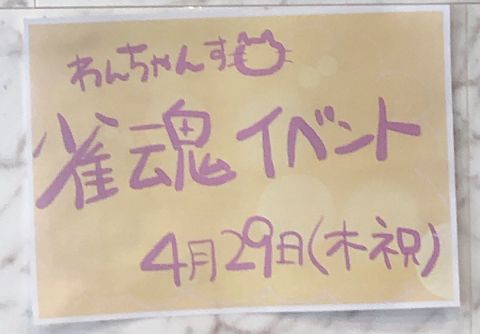 わんちゃんす
雀魂イベント
4月29日(木祝)